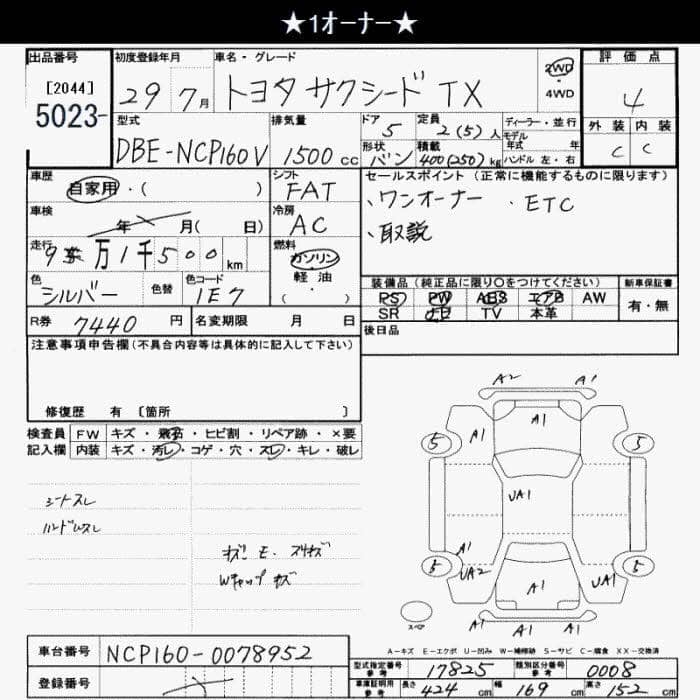 ★1オーナー★
出品番号 初度登録年月 車名・グレード 評価点
[2044]
5023-
29年 7月 トヨタ サクシード TX
2WD
4WD
4
型式 排気量 ドア 定員 ディーラー・並行 外装 内装
DBE-NCP160V 1500cc 5 2(5)人 モデル年式 年 C C
形状 積載
バン 400(250)kg ハンドル 左・右
車歴 シフト セールスポイント(正常に機能するものに限ります)
自家用・( ) FAT
・ワンオーナー ・ETC
車検 冷房
年 月( 日) AC
・取説
走行 燃料
9万1千500km ガソリン
軽油
(・)
色 色替 色コード
シルバー 1E7
装備品(純正品に限り○をつけてください) 新車保証書
PS PW ABS エアB AW 有・無
SR ナビ TV 本革
R券 7440円 名変期限 月 日
後日品
注意事項申告欄(不具合内容等は具体的に記入して下さい)
修復歴 有 〔箇所 〕
検査員 FW キズ・飛石・ヒビ割・リペア跡・×要
記入欄 内装 キズ・汚レ・コゲ・穴・スレ・キレ・破レ
A2 A1
A1
A1
5 5
UA1
A1
UA2
5 5
UA1
A1
A1 A1 A1
スペア
シートスレ
ハンドルスレ
キズ E. スリキズ
Wキャップ キズ
A-キズ E-エクボ U-凹み W-補修跡 S-サビ C-腐食 XX-交換済
車台番号 NCP160-0078952
登録番号
型式指定番号 参考 17825 類別区分番号 参考 0008
車庫証明用 参考 長さ 424cm 幅 169cm 高さ 152cm